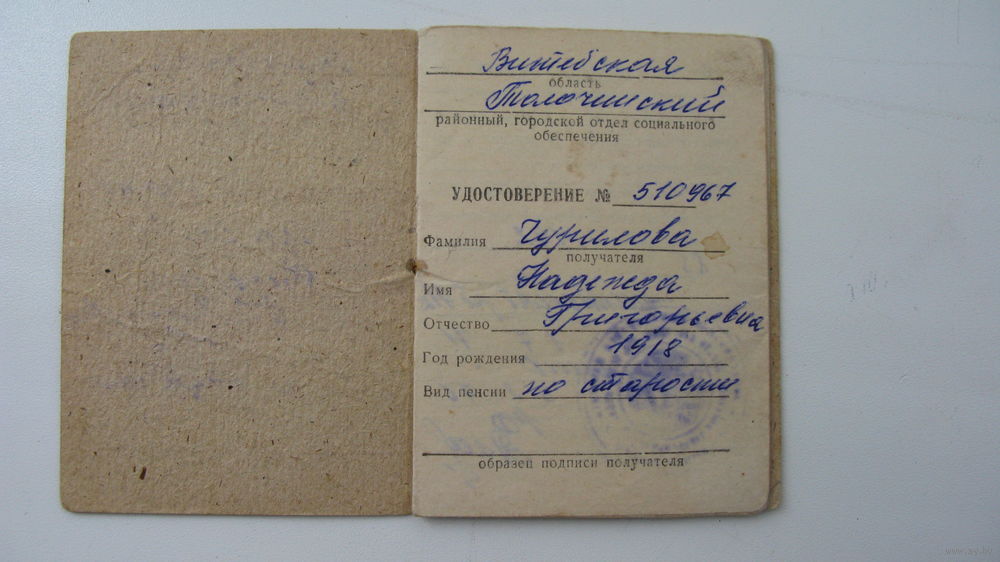 Витебская
область
Толочинский
районный, городской отдел социального
обеспечения
УДОСТОВЕРЕНИЕ № 510967
Фамилия Чурилова
получателя
Имя Надежда
Отчество Григорьевна
Год рождения 1918
Вид пенсии по старости
образец подписи получателя